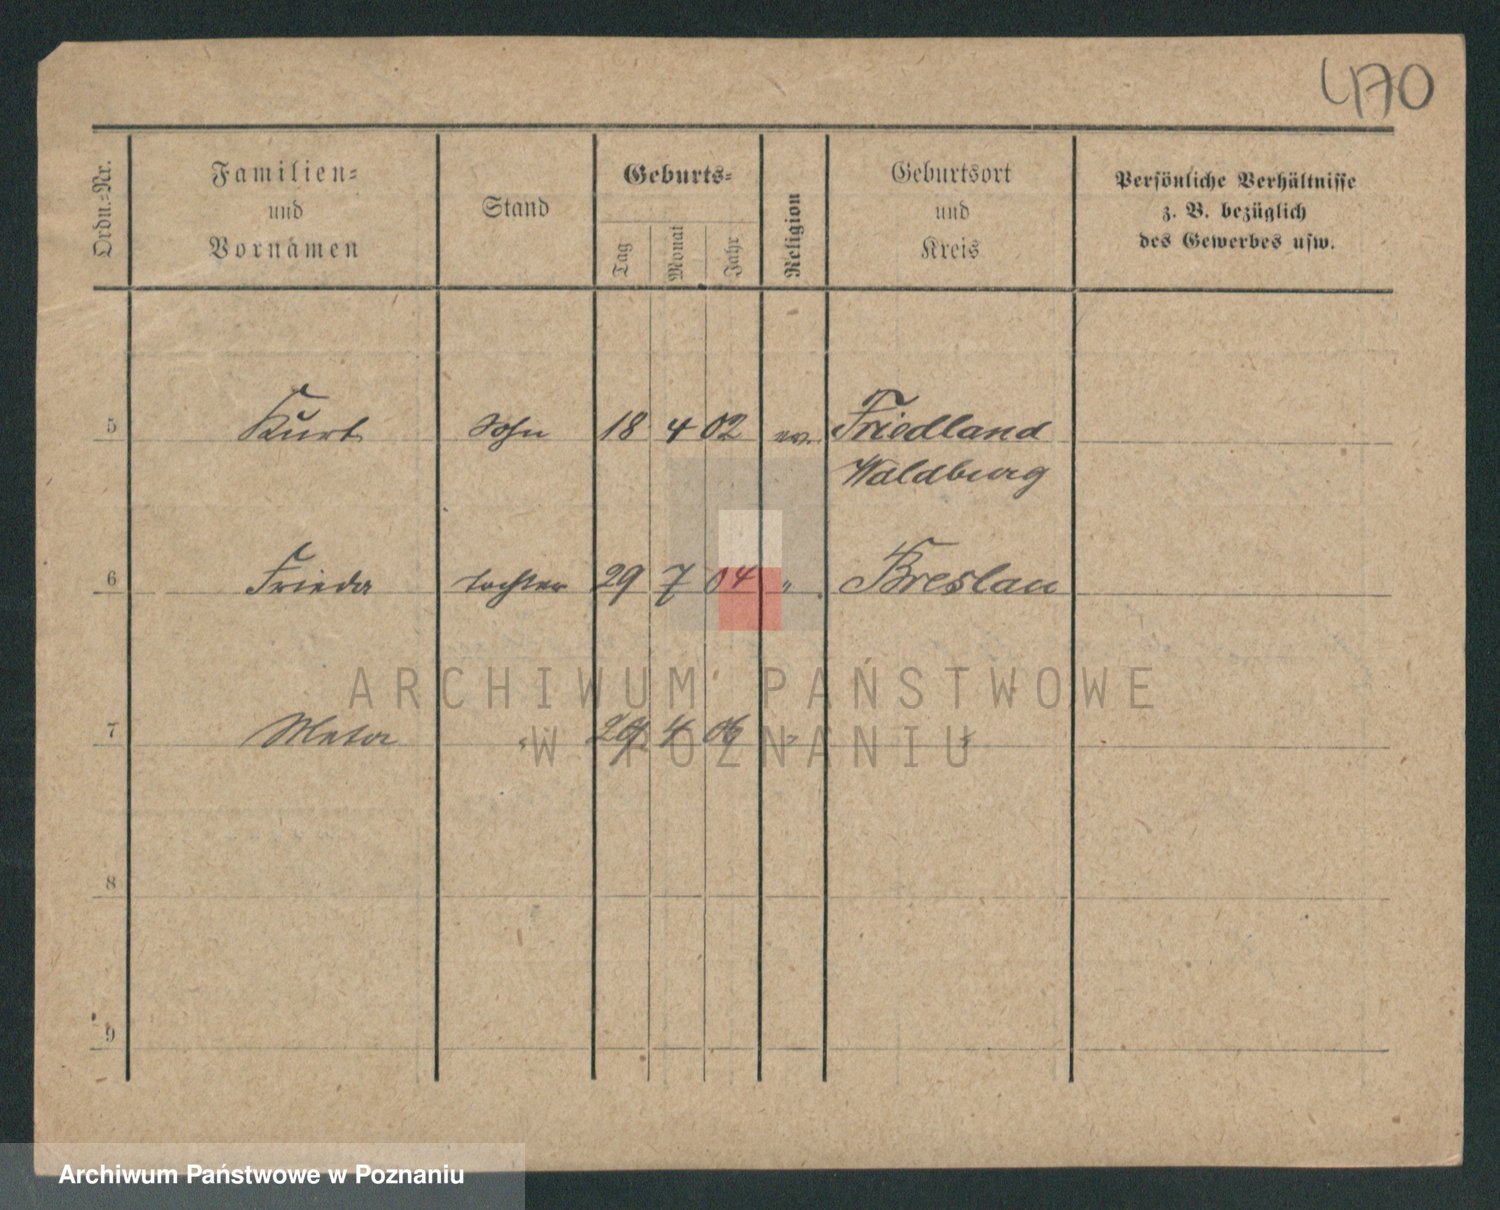 470
Ordn.-Nr.
Familien-
und
Vornamen
Stand
Geburts-
Tag
Monat
Jahr
Religion
Geburtsort
und
Kreis
Persönliche Verhältnisse
z. B. bezüglich
des Gewerbes usw.
5 Kurt Sohn 18 4 02 ev. Friedland
Waldburg
6 Frieda Tochter 29 7 04 " Breslau
7 Meta " 4 06 " "
8
9
ARCHIWUM PAŃSTWOWE
W POZNANIU
Archiwum Państwowe w Poznaniu